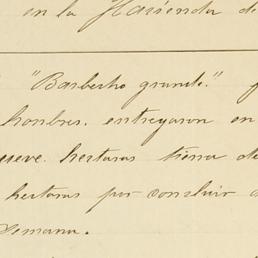 en la Hacienda de
"Barbecho grande."
hombres. entregaron en
ueve hectaras tierra de
hectaras por concluir
semana.